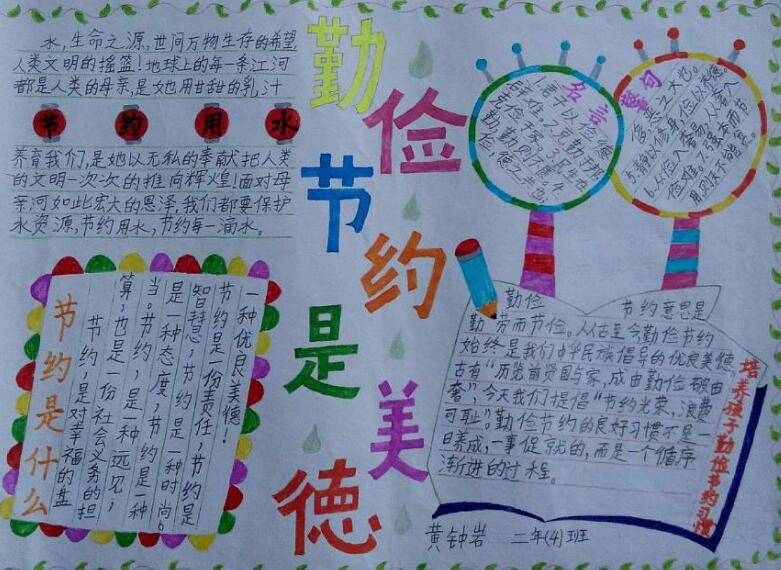 水,生命之源,世间万物生存的希望,
人类文明的摇篮!地球上的每一条江河
都是人类的母亲,是她用甘甜的乳汁
节约用水
养育我们,是她以无私的奉献把人类
的文明一次次的推向辉煌!面对母
亲河如此宏大的恩泽,我们都要保护
水资源,节约用水,节约每一滴水。
勤俭节约是美德
名言
1.君子以俭德
辟难。2.克勤于邦,
克俭于家。3.民生在
勤,勤则不匮。4.
俭,德之共也。
警句
5.静以修身,俭以养德。
节约是什么
节约,是对幸福的盘
算,也是一份社会义务的担
当。节约,是一种远见,
是一种态度,节约是一种
智慧,节约是一种时尚。
节约是一份责任,节约是
一种优良美德!
勤俭 节约意思是
勤劳而节俭。从古至今勤俭节约
始终是我们中华民族倡导的优良美德,
古有“历览前贤国与家,成由勤俭破由
奢”,今天我们提倡“节约光荣,浪费
可耻”。勤俭节约的良好习惯不是一
日养成,一事促就的,而是一个循序
渐进的过程。
培养孩子勤俭节约习惯
黄钟岩 二年(4)班